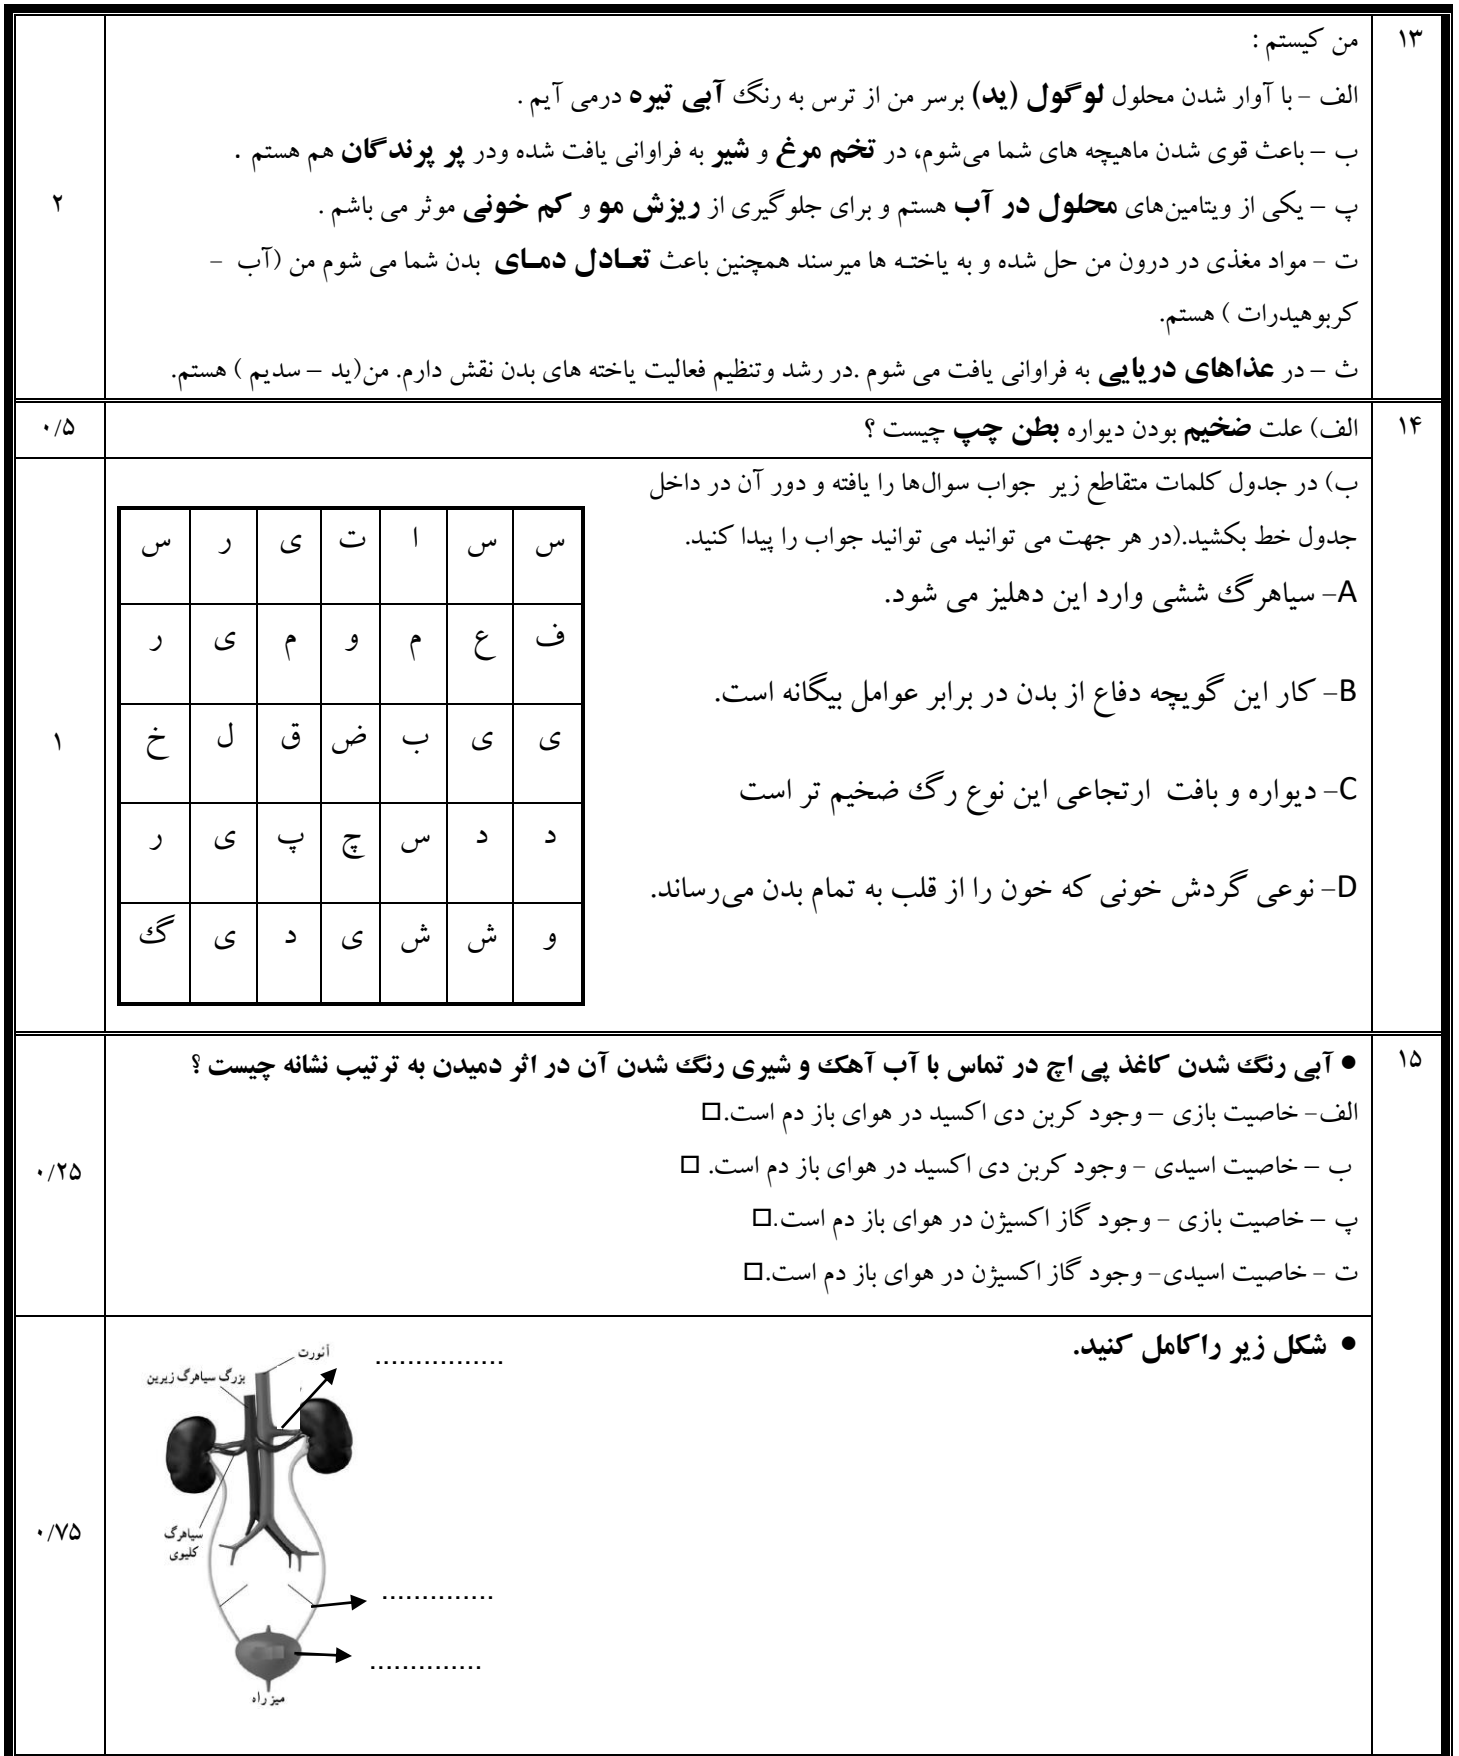 ۱۳
من کیستم :
الف – با آوار شدن محلول لوگول (ید) برسر من از ترس به رنگ آبی تیره درمی آیم .
ب – باعث قوی شدن ماهیچه های شما می‌شوم، در تخم مرغ و شیر به فراوانی یافت شده ودر پر پرندگان هم هستم .
پ – یکی از ویتامین‌های محلول در آب هستم و برای جلوگیری از ریزش مو و کم خونی موثر می باشم .
ت – مواد مغذی در درون من حل شده و به یاخته ها میرسند همچنین باعث تعادل دمای بدن شما می شوم من (آب –
کربوهیدرات ) هستم.
ث – در عذاهای دریایی به فراوانی یافت می شوم .در رشد وتنظیم فعالیت یاخته های بدن نقش دارم. من(ید – سدیم ) هستم.
۲
۱۴
الف) علت ضخیم بودن دیواره بطن چپ چیست ؟
۰/۵
ب) در جدول کلمات متقاطع زیر جواب سوال‌ها را یافته و دور آن در داخل
جدول خط بکشید.(در هر جهت می توانید می توانید جواب را پیدا کنید.
A– سیاهرگ ششی وارد این دهلیز می شود.
B– کار این گویچه دفاع از بدن در برابر عوامل بیگانه است.
C– دیواره و بافت ارتجاعی این نوع رگ ضخیم تر است
D– نوعی گردش خونی که خون را از قلب به تمام بدن می‌رساند.
س س ا ت ی ر س
ف ع م و م ی ر
ی ی ب ض ق ل خ
د د س چ پ ی ر
و ش ش ی د ی گ
۱
۱۵
● آبی رنگ شدن کاغذ پی اچ در تماس با آب آهک و شیری رنگ شدن آن در اثر دمیدن به ترتیب نشانه چیست ؟
الف– خاصیت بازی – وجود کربن دی اکسید در هوای باز دم است.□
ب – خاصیت اسیدی – وجود کربن دی اکسید در هوای باز دم است. □
پ – خاصیت بازی – وجود گاز اکسیژن در هوای باز دم است.□
ت – خاصیت اسیدی– وجود گاز اکسیژن در هوای باز دم است.□
۰/۲۵
● شکل زیر راکامل کنید.
آئورت
................
بزرگ سیاهرگ زیرین
سیاهرگ
کلیوی
..............
..............
میز راه
۰/۷۵